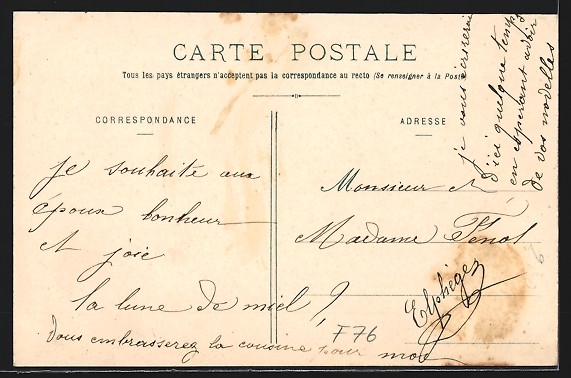 CARTE POSTALE
Tous les pays étrangers n'acceptent pas la correspondance au recto (Se renseigner à la Poste
CORRESPONDANCE
ADRESSE
je souhaite aux
époux bonheur
et joie
la lune de miel !
Vous embrasserez la cousine pour moi
Monsieur et
Madame Fénol
F76
je vous écrirerai
d'ici quelque temps
en espérant avoir
de vos nouvelles